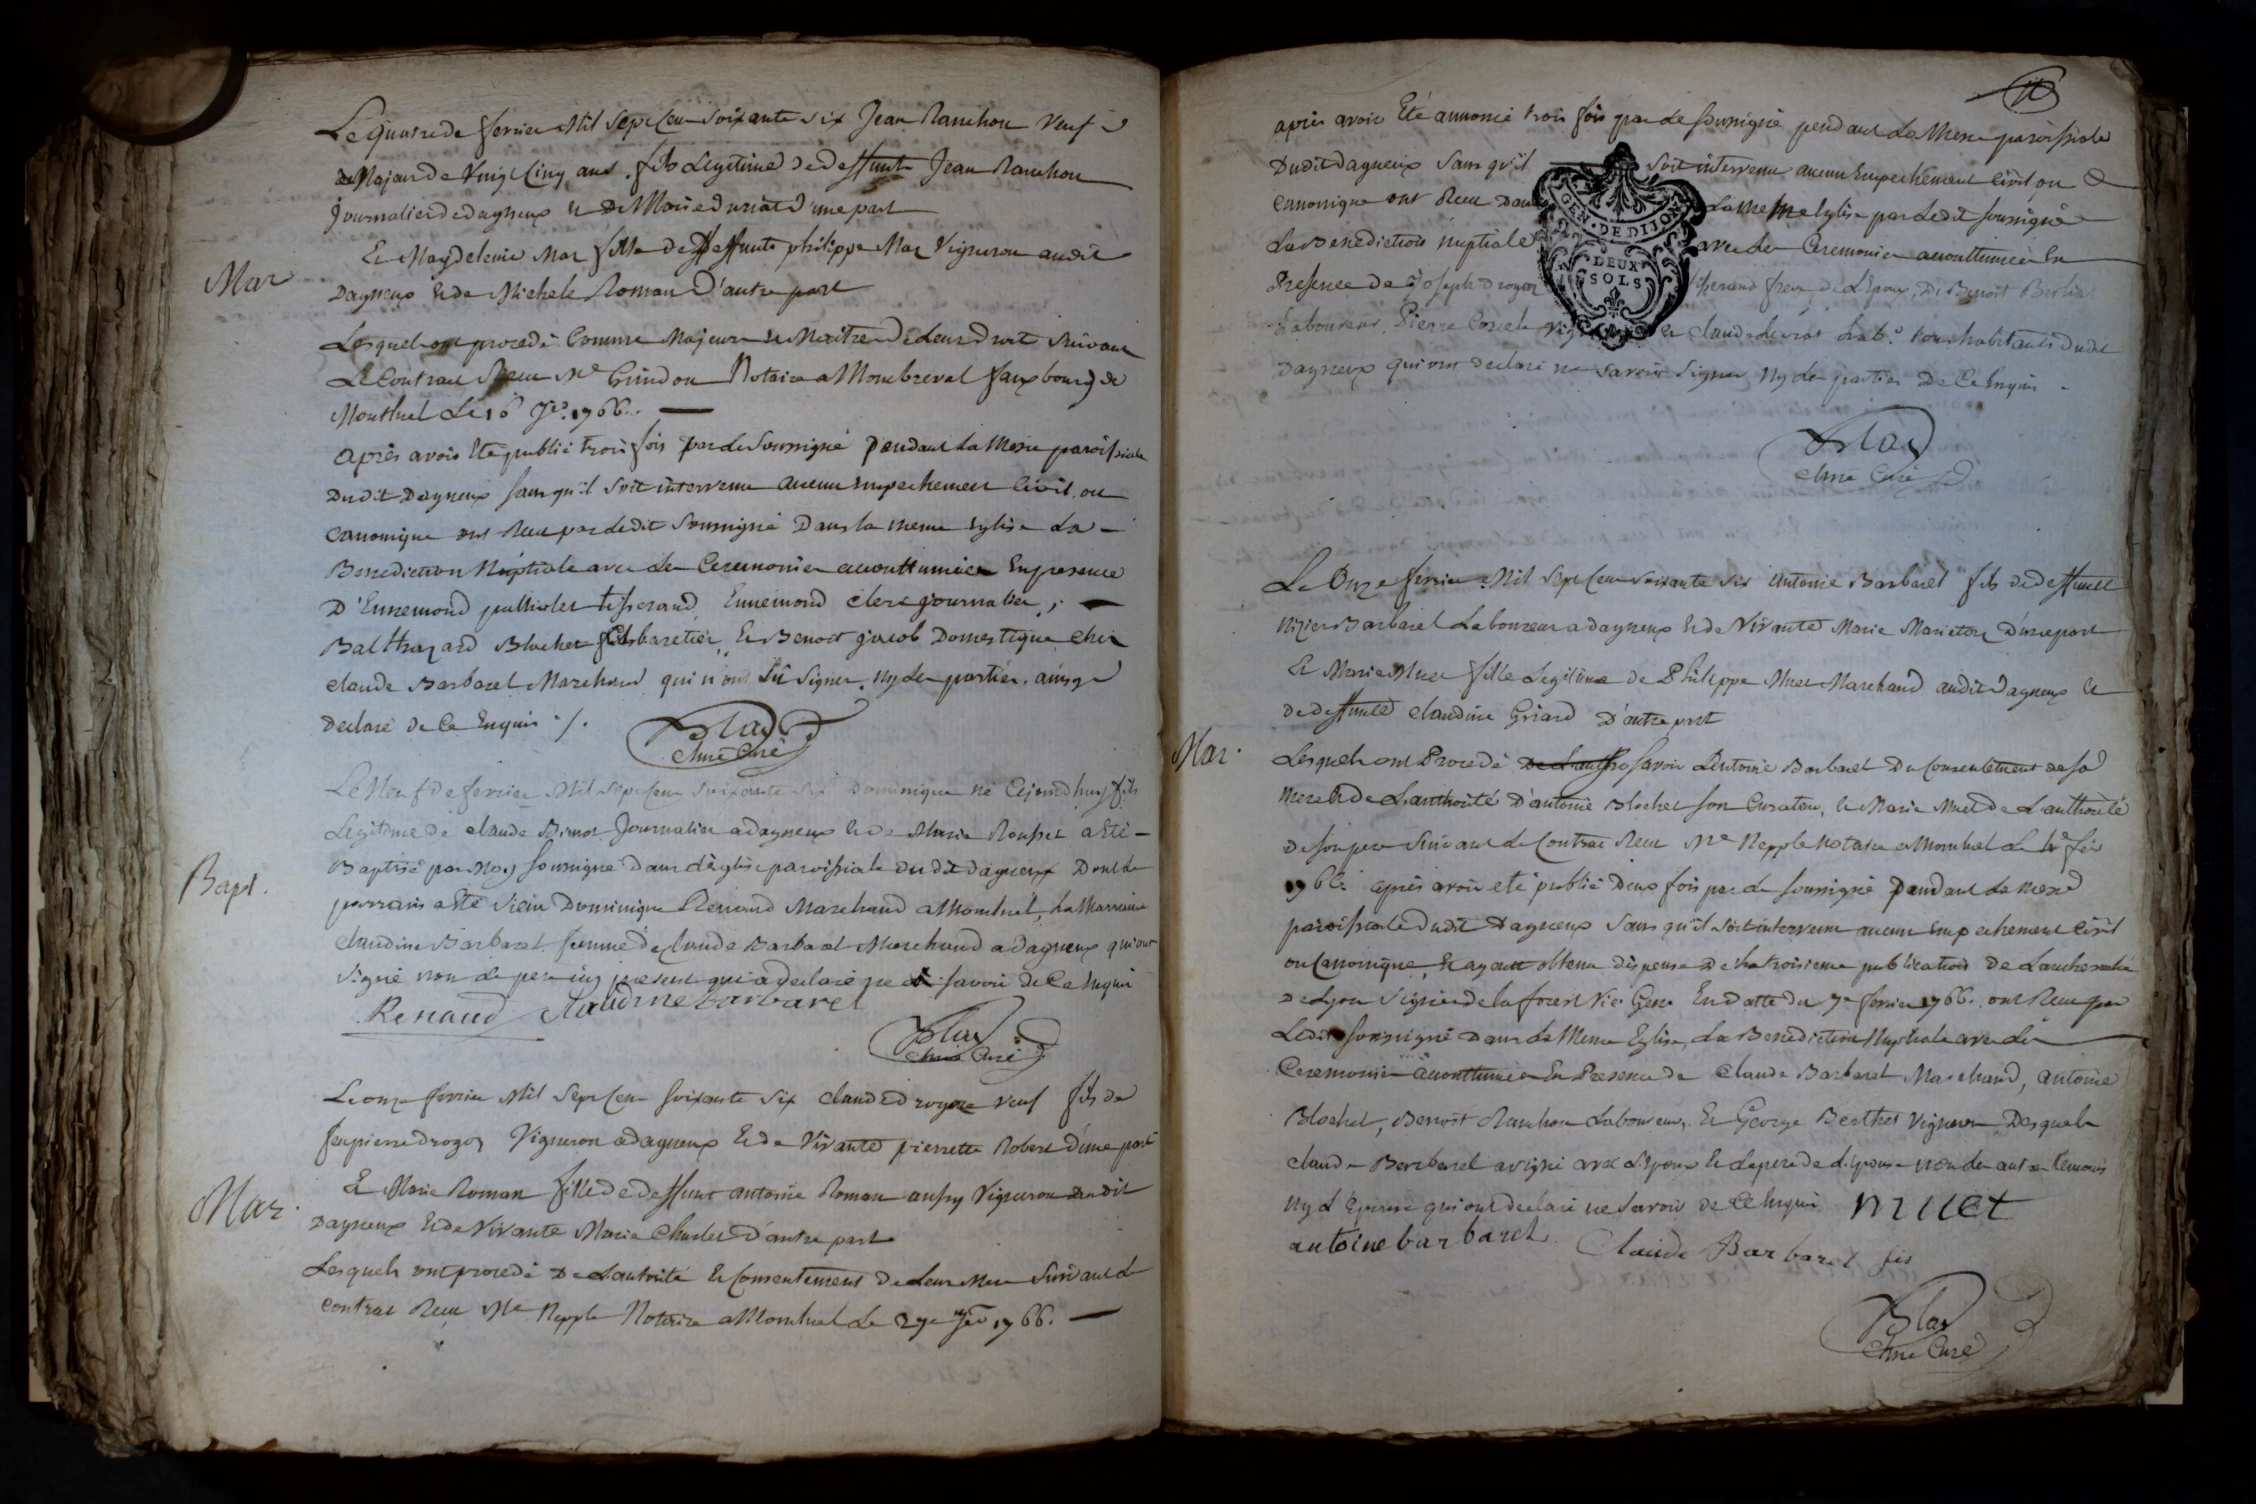 Le quatre de fevrier Mil Sept Cent Soixante six Jean Ranchon Veuf
Majeur de Vingt Cinq ans fils Legitime de deffunt Jean Ranchon
Journalier de dagneux et de Marie d'une part
Mar
Et Magdeleine Mar fille de deffunt philippe Mar Vigneron audit
Dagneux et de Michele Roman D'autre part
Lesquels ont procedé Comme Majeurs et Maitres de Leurs droit Suivant
Le Contrat Recu Me Guindon Notaire a Montbreval fauxbourg de
Montluel Le 16 1766.
après avoir Eté publié trois fois par le Soussigné pendant La Messe paroissiale
Dudit Dagneux sans qu'il soit intervenu aucun empechement Civil ou
Canonique ont Recu par ledit Soussigné Dans la meme Eglise La
Benediction Nuptiale avec Les Ceremonies accoutumées En presence
D'Ennemond tisserand, Ennemond Clerc journalier,
Balthazard Blochet Cabaretier, Et Benoit jacob Domestique Chez
Claude Barbaret Marchand qui n'ont Sû Signer, Ny les parties, ainsy
Declaré de Ce Enquis ./.
Blay
Curé
Le Neuf de fevrier Mil Sept Cent Soixante Six Dominique né Cejourd'huy fils
Legitime de Claude Journalier a dagneux et de Marie Rousset a Eté
Bapt.
Baptisé par Moy Soussigné Dans L'eglise paroissiale du dit dagneux Dont Le
parrain a Eté Sieur Dominique Renaud Marchand a Montluel, La Marraine
Claudine Barbaret femme de Claude Barbaret Marchand a dagneux qui ont
Signé non le pere icy present qui a declaré ne savoir de Ce Enquis
Renaud Claudine barbaret
Blay
Curé
Le onze fevrier Mil Sept Cent Soixante Six Claude drogoz Veuf fils de
feu pierre drogoz Vigneron a dagneux Et de Vivante pierrette Robert d'une part
Mar.
Et Marie Roman fille de deffunt Antoine Roman aussy Vigneron audit
Dagneux Et de Vivante Marie Charlet D'autre part
Lesquels ont procedé De L'autorité Et Consentement de Leur Mere Suivant Le
Contrat Recu Me Repple Notaire a Montluel Le 27e 1766.
après avoir Eté annoncé trois fois par Le Soussigné pendant La Messe paroissiale
Dudit Dagneux Sans qu'il soit intervenu aucun Empechement Civil ou
Canonique ont Recu Dans La Meme Eglise par Ledit Soussigné
La Benediction Nuptiale avec Les Ceremonies accoutumées En
GEN. DE DIJON
DEUX
SOLS
Presence de Joseph drogoz frere de L'Epoux, De Benoit
Laboureur, Pierre Et Claude Lab. tous habitants dudit
Dagneux qui ont declaré ne savoir Signer Ny les parties De Ce Enquis
Blay
Curé
Le Onze fevrier Mil Sept Cent Soixante Six Antoine Barbaret fils de deffunt
Nizier Barbaret Laboureur a dagneux Et de Vivante Marie Marieton D'une part
Et Marie Muet fille Legitime de Philippe Muet Marchand audit Dagneux Et
de deffunte Claudine Griard D'autre part
Mar.
Lesquels ont Procedé Savoir Antoine Barbaret Du Consentement de Sa
Mere Et de L'authorité D'antoine Blochet Son Curateur, Et Marie Muet de L'authorité
De Son pere Suivant Le Contrat Recu Me Repple Notaire a Montluel Le
1766. après avoir eté publié Deux fois par Le Soussigné Pendant La Messe
paroissiale Dudit Dagneux Sans qu'il soit intervenu aucun Empechement Civil
ou Canonique, Et ayant obtenu dispense de La troisieme publication de
De Lyon Signée de la forest Vic. Gen. En datte du 7e fevrier 1766. ont Recu par
Ledit Soussigné Dans La Meme Eglise La Benediction Nuptiale avec Les
Ceremonies accoutumées En Presence de Claude Barbaret Marchand, Antoine
Blochet, Benoit Ranchon Laboureur, Et George Berthet Vigneron Desquels
Claude Barbaret a signé avec L'Epoux Et Le pere de L'Epouse non Les autres temoins
Ny L'Epouse qui ont declaré ne Savoir de Ce Enquis muet
antoine barbaret Claude Barbaret fis
Blay
Curé